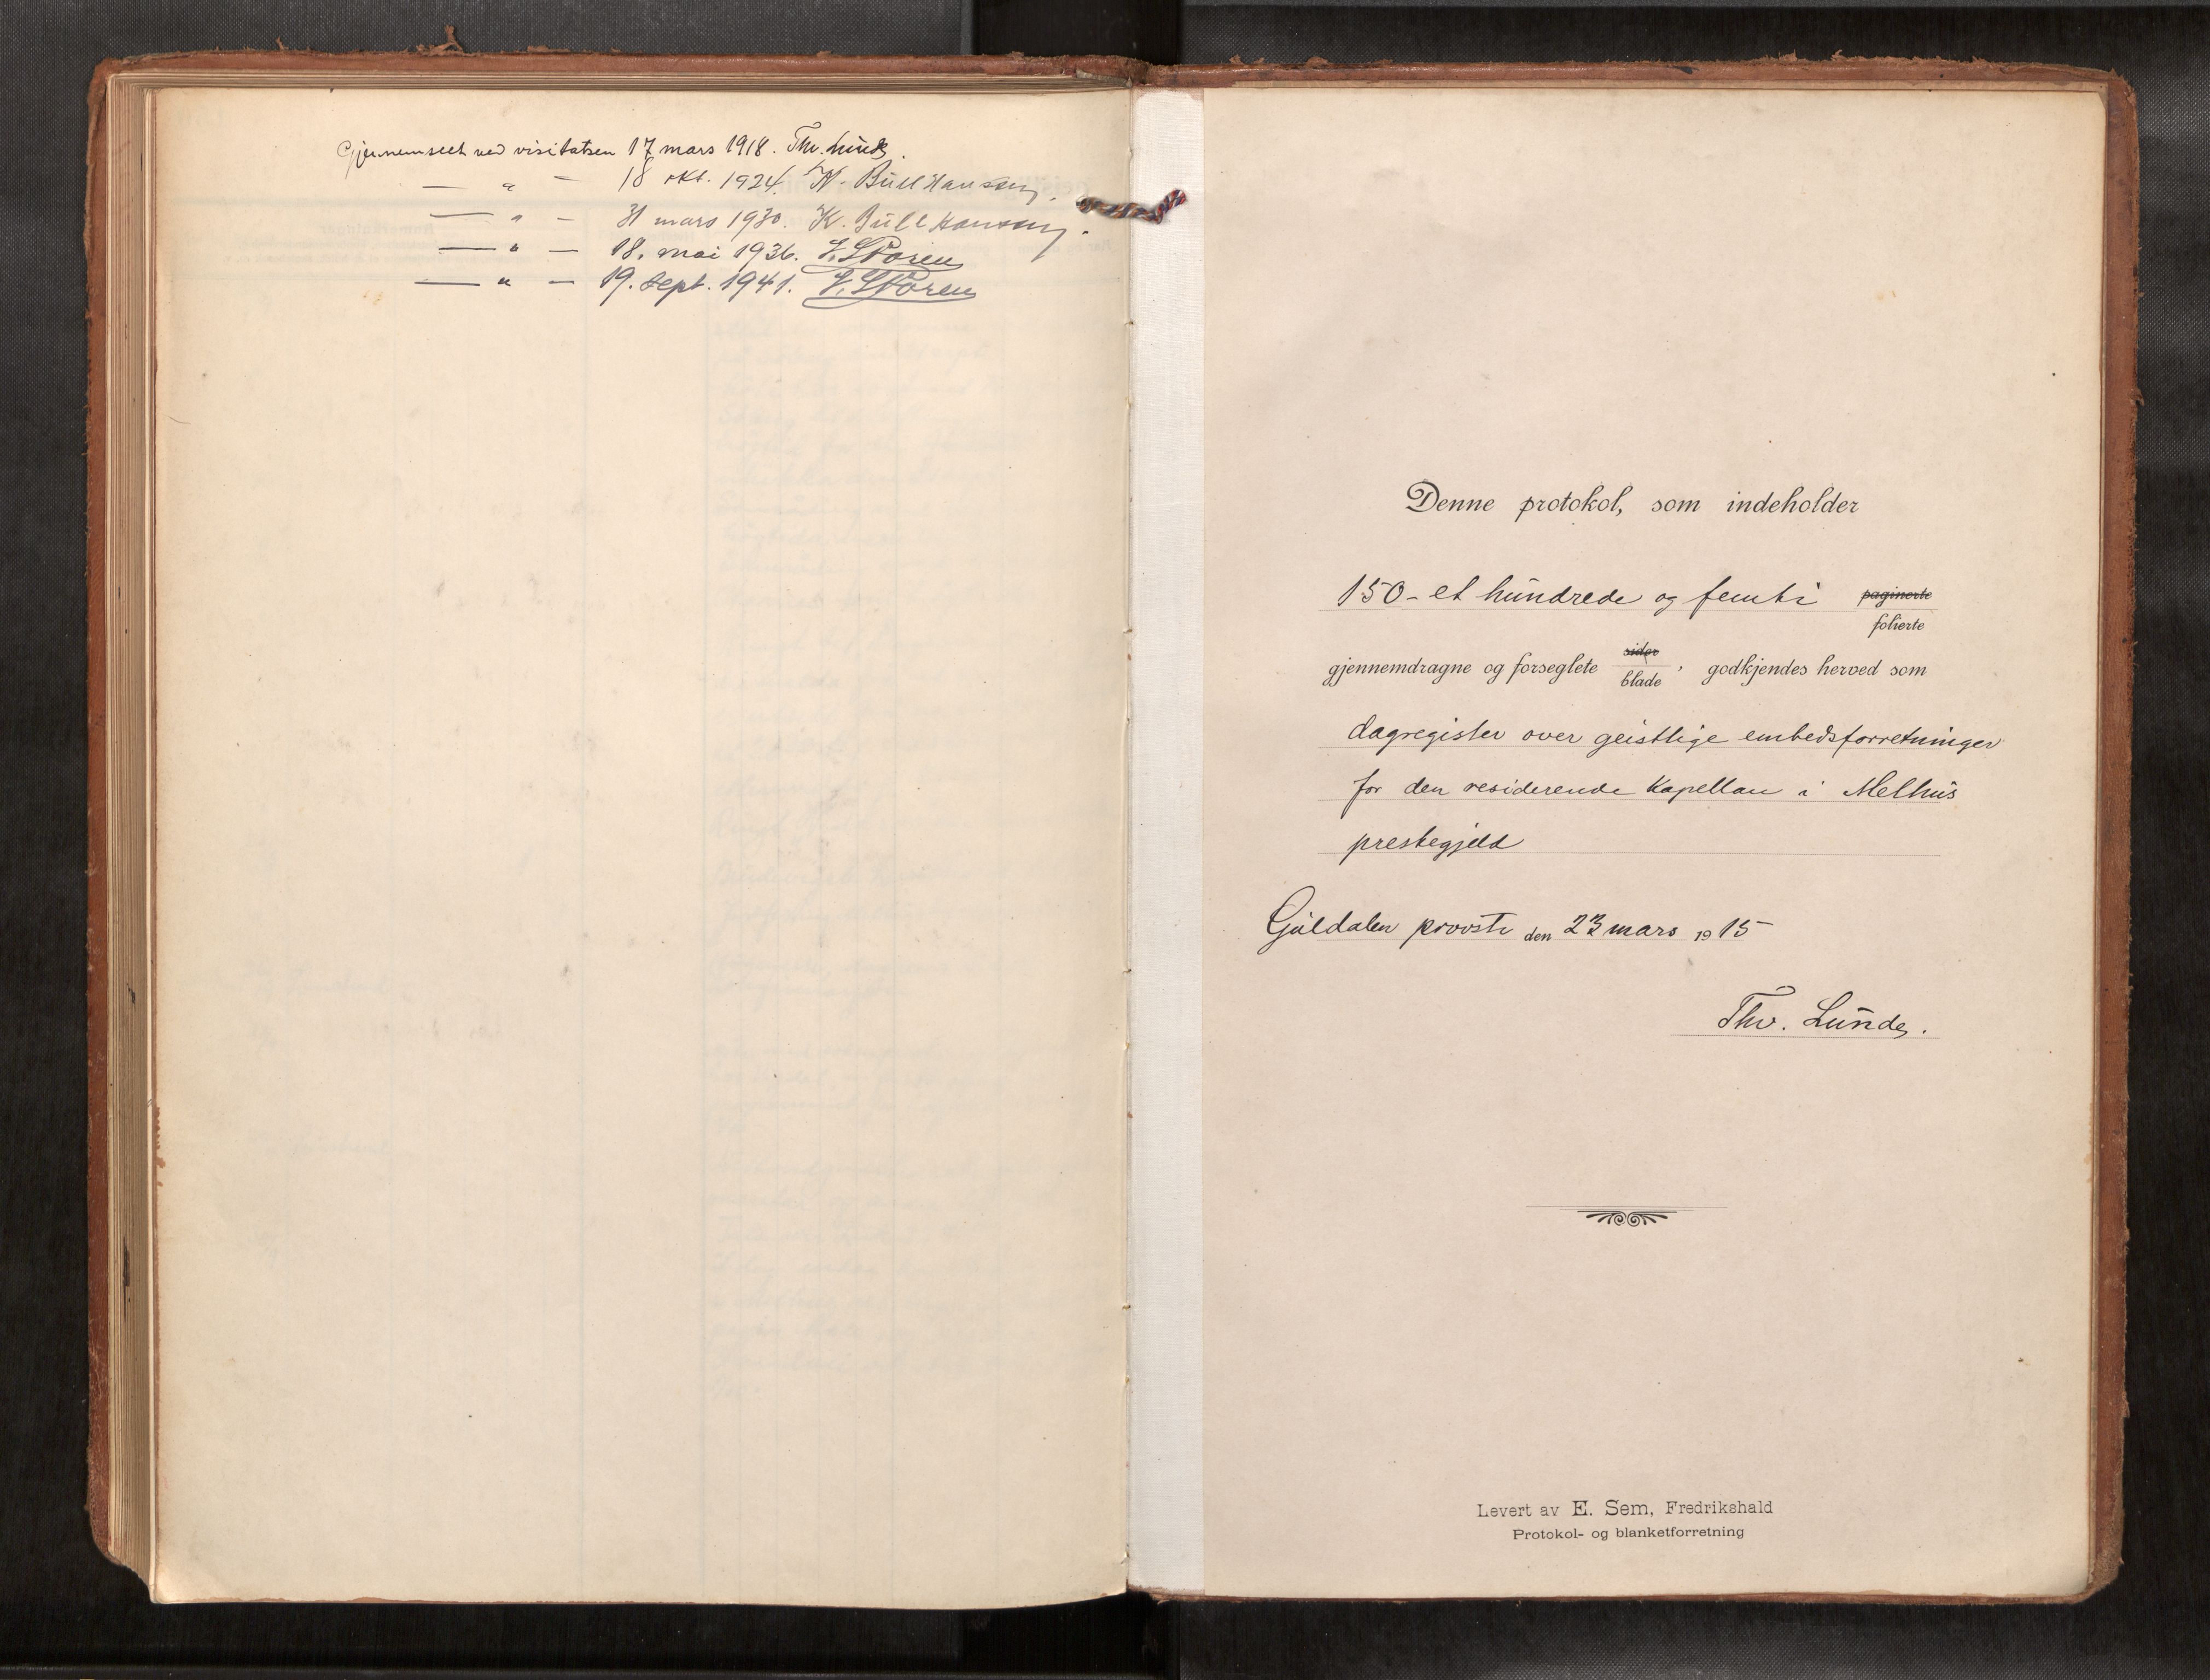 Gjennemseet ved visitatsen 17 mars 1918. Thv. Lunde.
— " — 18 okt. 1924. K. Bull Hansen.
— " — 31 mars 1930. K. Bull Hansen.
— " — 18. mai 1936. J. Støren
— " — 19. sept. 1941. J. Støren
Denne protokol, som indeholder
150 - et hundrede og femti paginerte
folierte
gjennemdragne og forseglete sider
blade, godkjendes herved som
dagregister over geistlige embedsforretninger
for den residerende kapellan i Melhus
prestegjeld
Guldalen provsti den 23 mars 1915
Thv. Lunde.
Levert av E. Sem, Fredrikshald
Protokol- og blanketforretning